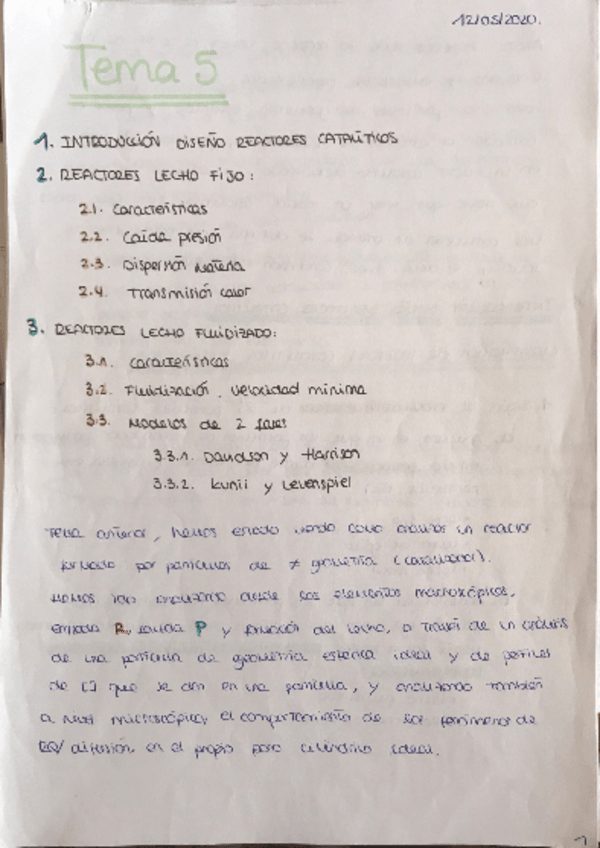 12/05/2020.
Tema 5
1. INTRODUCCIÓN DISEÑO REACTORES CATALÍTICOS
2. REACTORES LECHO FIJO:
2.1. Características
2.2. Caída presión
2.3. Dispersión materia
2.4. Transmisión calor
3. REACTORES LECHO FLUIDIZADO:
3.1. Características
3.2. Fluidización. Velocidad mínima
3.3. Modelos de 2 fases
3.3.1. Davidson y Harrison
3.3.2. Kunii y Levenspiel
Tema anterior, hemos estado viendo como analizar un reactor
formado por partículas de ≠ geometría (catalizador).
Hemos ido analizando desde los elementos macroscópicos,
entrada R, salida P y función del lecho, a través de un análisis
de una partícula de geometría esférica ideal y de perfiles
de [] que se dan en una partícula, y analizando también
a nivel microscópico, el comportamiento de los fenómenos de
RQ/ difusión, en el propio poro cilíndrico ideal.
1